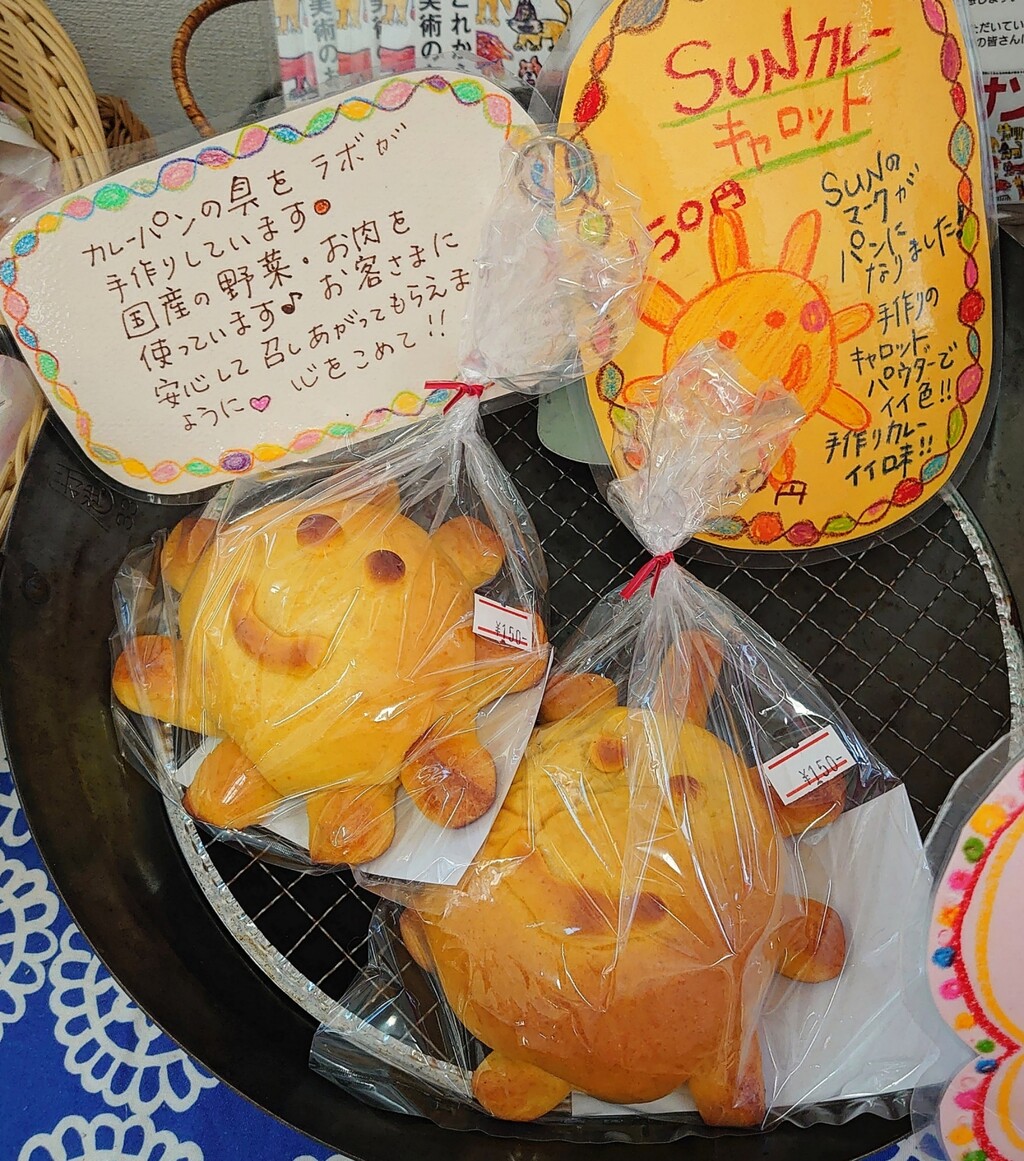 カレーパンの具を ラボが
手作りしています
国産の野菜・お肉を
使っています♪ お客さまに
安心して召しあがってもらえま
ように♡ 心をこめて!!
SUNカレー
キャロット
50円
SUNの
マークが
パンに
なりました!
手作りの
キャロット
パウダーで
イイ色!!
手作りカレー
イイ味!!
50円
¥150-
¥150-
美術の
美術の
これか
ただいてい
の皆さん
ナン